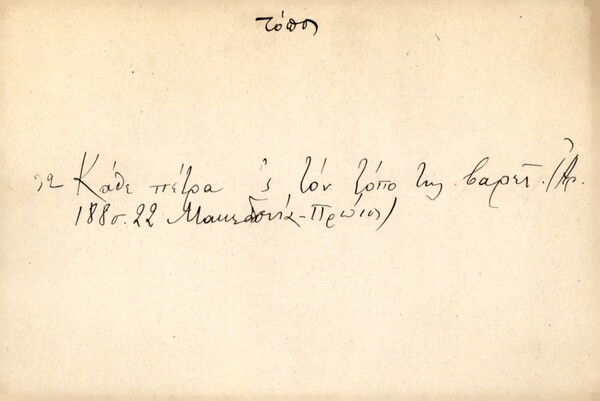 τόπος
Κάθε πέτρα 'ς τὸν τόπο της βαρεῖ. (Ἀρ.
188 σ. 22 Μακεδονία - Πρώιος)